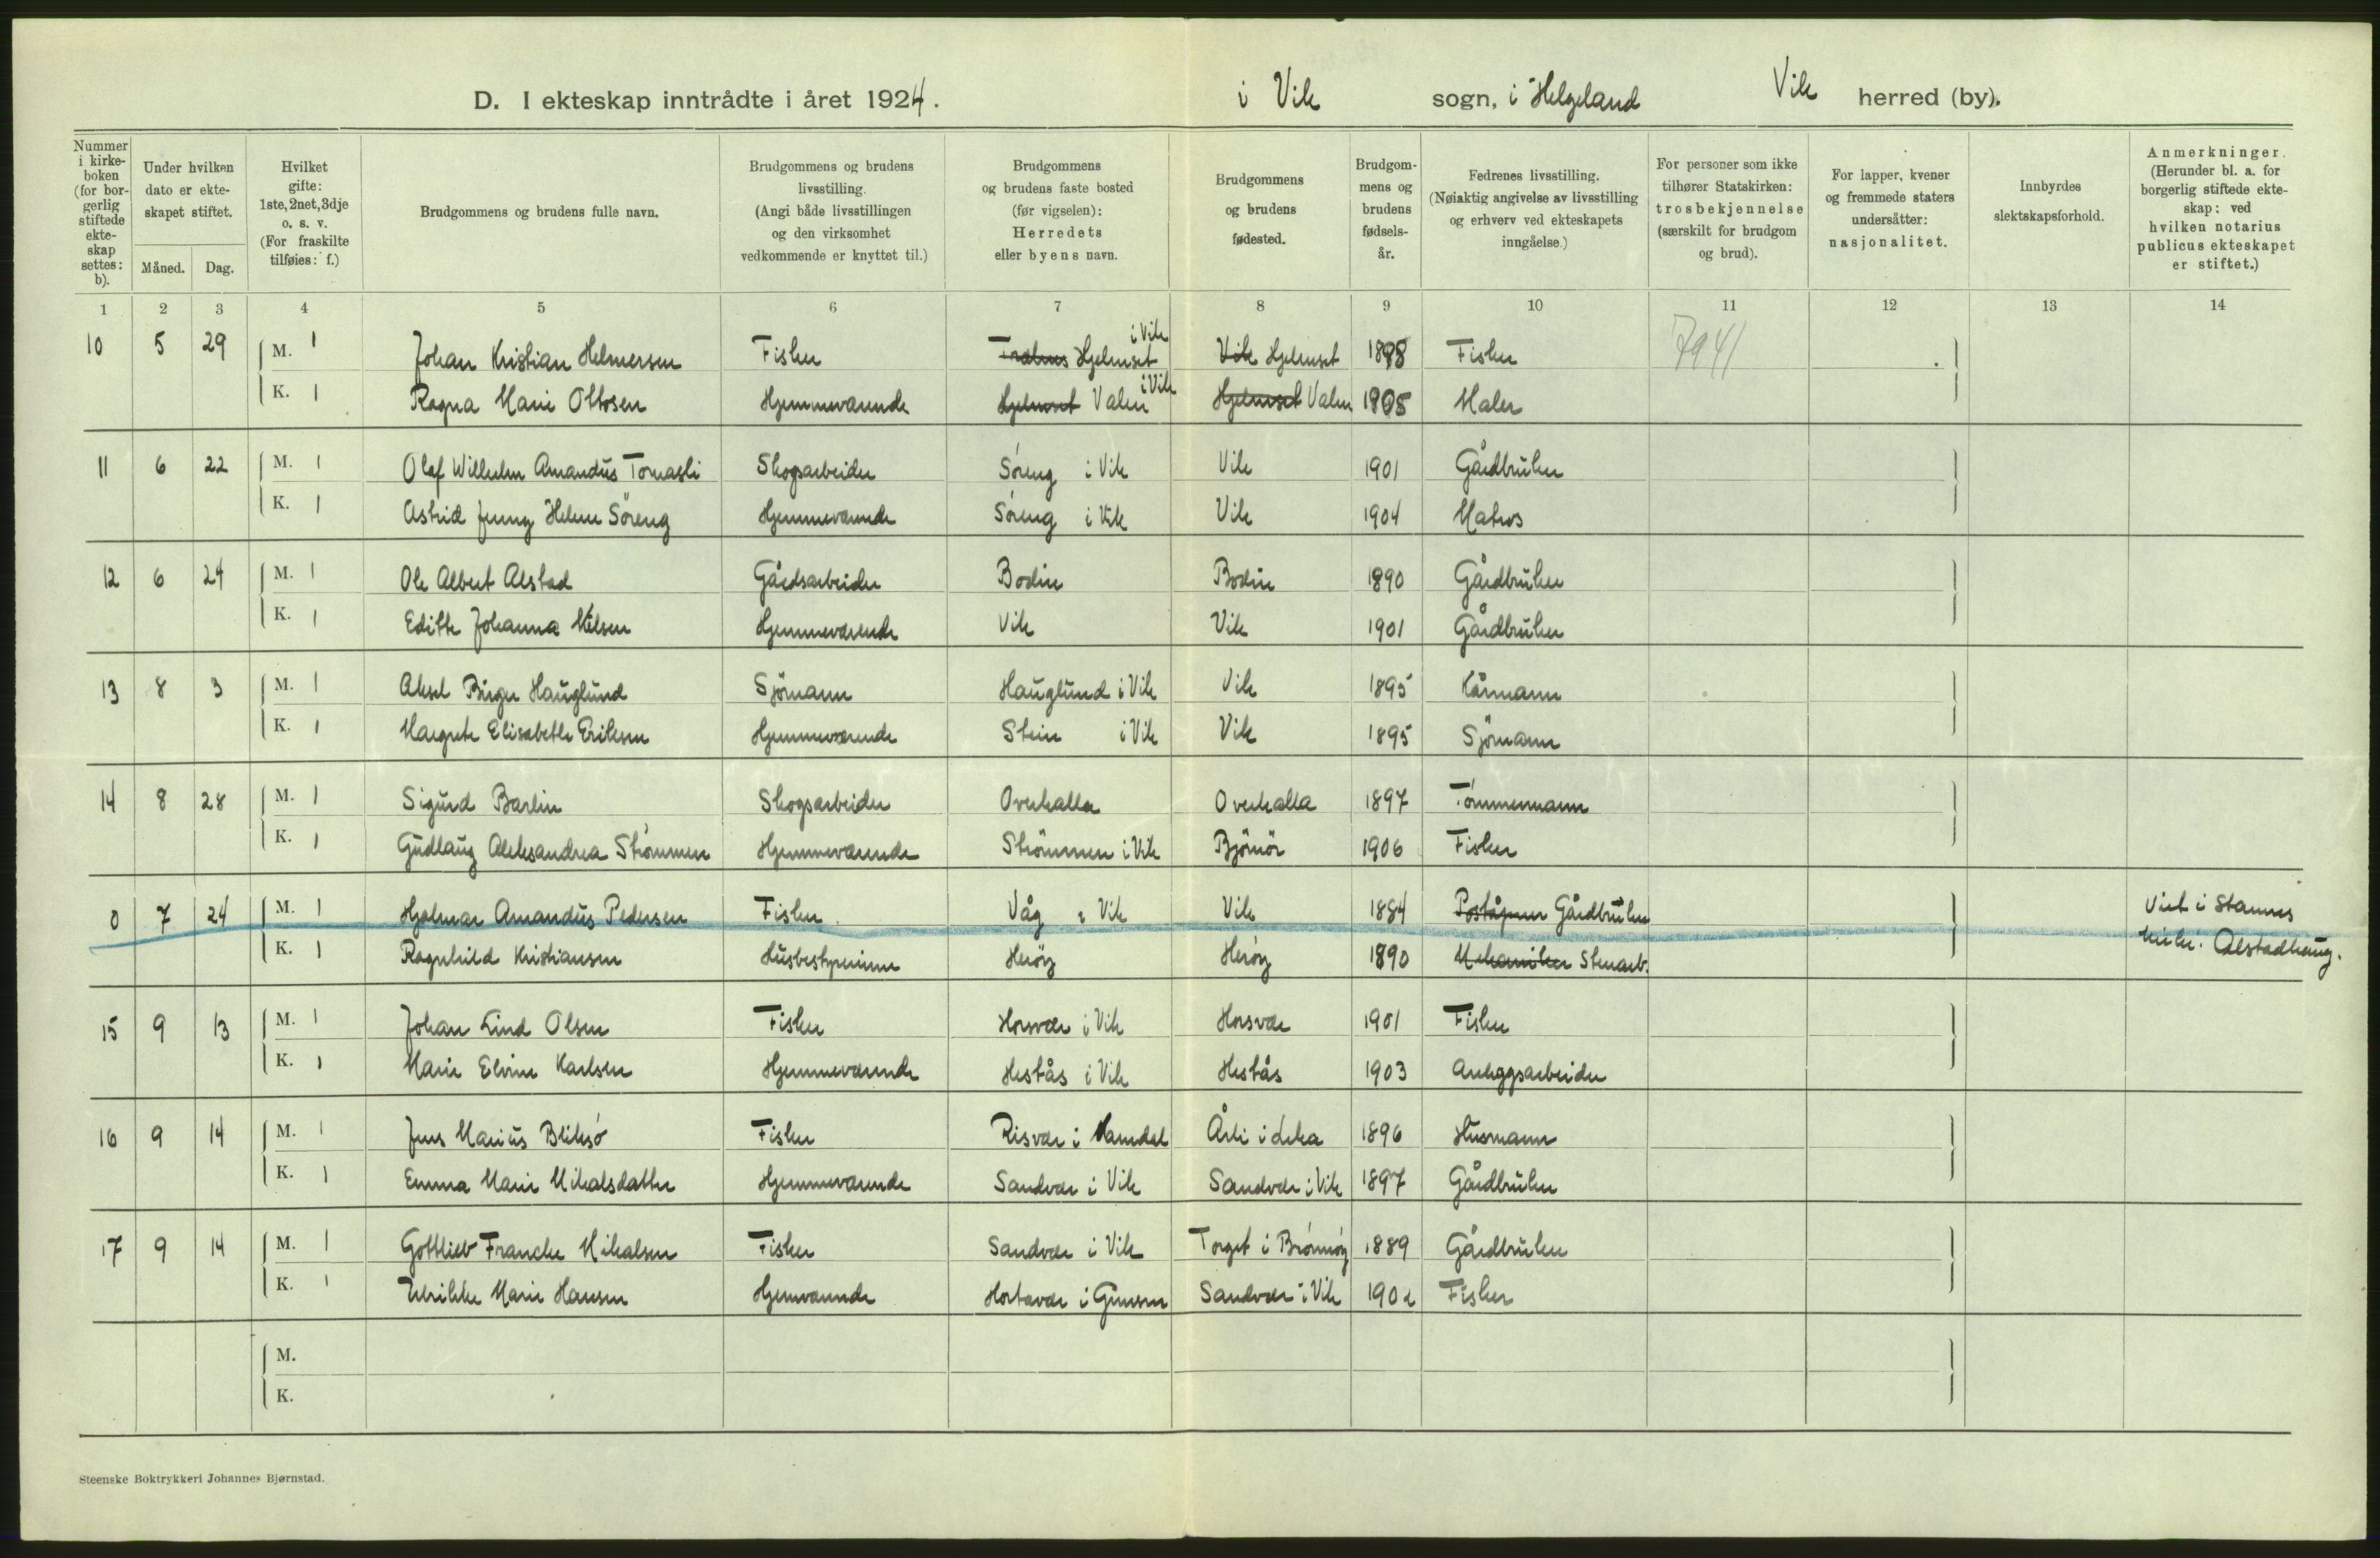 D. I ekteskap inntrådte i året 1924.
i Vik sogn, i Helgeland Vik herred (by).
Nummer i kirke-boken (for bor-gerlig stiftede ekte-skap settes: b).
Under hvilken dato er ekte-skapet stiftet.
Måned. Dag.
Hvilket gifte: 1ste, 2net, 3dje o. s. v. (For fraskilte tilføies: f.)
Brudgommens og brudens fulle navn.
Brudgommens og brudens livsstilling. (Angi både livsstillingen og den virksomhet vedkommende er knyttet til.)
Brudgommens og brudens faste bosted (før vigselen): Herredets eller byens navn.
Brudgommens og brudens fødested.
Brudgom-mens og brudens fødsels-år.
Fedrenes livsstilling. (Nøiaktig angivelse av livsstilling og erhverv ved ekteskapets inngåelse.)
For personer som ikke tilhører Statskirken: trosbekjennelse (særskilt for brudgom og brud).
For lapper, kvener og fremmede staters undersåtter: nasjonalitet.
Innbyrdes slektskapsforhold.
Anmerkninger. (Herunder bl. a. for borgerlig stiftede ekte-skap: ved hvilken notarius publicus ekteskapet er stiftet.)
1 2 3 4 5 6 7 8 9 10 11 12 13 14
10 5 29 M. 1 Johan Kristian Helmersen Fisker Hjelmset i Vik Vik Hjelmset 1898 Fisker 7941
K. 1 Ragna Marie Ottosen Hjemmeværende Hjelmset Valen i Vik Hjelmset Valen 1905 Maler
11 6 22 M. 1 Olaf Wilhelm Amandus Tomasli Skogsarbeider Søreng i Vik Vik 1901 Gårdbruker
K. 1 Astrid Jenny Helene Søreng Hjemmeværende Søreng i Vik Vik 1904 Matros
12 6 24 M. 1 Ole Albert Alstad Gårdsarbeider Bodin Bodin 1890 Gårdbruker
K. 1 Edith Johanna Nilsen Hjemmeværende Vik Vik 1901 Gårdbruker
13 8 3 M. 1 Aksel Birger Hauglund Sjömann Hauglund i Vik Vik 1895 Kårmann
K. 1 Margrete Elisabeth Eriksen Hjemmeværende Stein i Vik Vik 1895 Sjömann
14 8 28 M. 1 Sigurd Barlin Skogsarbeider Overhalla Overhalla 1897 Tømmermann
K. 1 Gudlaug Aleksandrea Strömmen Hjemmeværende Strömmen i Vik Björnör 1906 Fisker
0 7 24 M. 1 Hjalmar Amandus Pedersen Fisker Våg i Vik Vik 1884 Poståpner Gårdbruker Viet i Stamnes
K. 1 Ragnhild Kristiansen Husbestyrerinne Herøy Herøy 1890 Mekaniker Stenarb. kirke. Alstadhaug.
15 9 13 M. 1 Johan Lind Olsen Fisker Horsvær i Vik Horsvær 1901 Fisker
K. 1 Marie Elvine Karlsen Hjemmeværende Hestås i Vik Hestås 1903 Anleggsarbeider
16 9 14 M. 1 Jens Marius Bliksø Fisker Risvær i Namdal Årli i Leka 1896 Husmann
K. 1 Emma Marie Mikalsdatter Hjemmeværende Sandvær i Vik Sandvær i Vik 1897 Gårdbruker
17 9 14 M. 1 Gottlieb Francke Mikalsen Fisker Sandvær i Vik Torget i Brønnøy 1889 Gårdbruker
K. 1 Ulrikke Marie Hansen Hjemværende Hortavær i Sandvær i Vik 1902 Fisker
M.
K.
Steenske Boktrykkeri Johannes Bjørnstad.